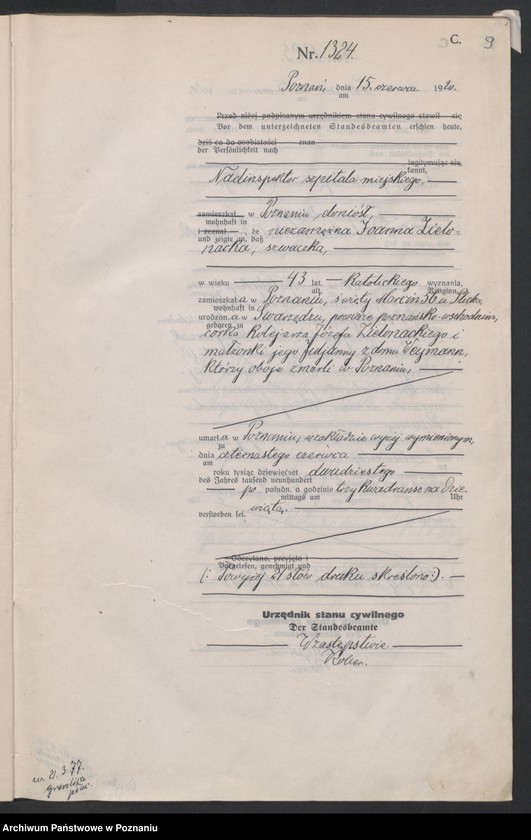 C.
9
Nr. 1324.
Poznań, dnia 15. czerwca 1920.
am
Przed niżej podpisanym urzędnikiem stanu cywilnego stawił się
Vor dem unterzeichneten Standesbeamten erschien heute,
dziś co do osobistości znan
der Persönlichkeit nach
legitymując się,
kannt,
Nadinspektor szpitala miejskiego,
zamieszkał w Poznaniu doniósł,
wohnhaft in
i zeznał, że niezamężna Joanna Zielo-
und zeigte an, daß
nacka, szwaczka,
w wieku 43 lat, Katolickiego wyznania,
alt, Religion,
zamieszkała w Poznaniu, święty Marcin 56 u
wohnhaft in
urodzona w Swarzędzu, powiat poznańsko-wschodnim,
geboren zu
córka kolejarza Józefa Zielonackiego i
małżonki jego z domu Weymann,
którzy oboje zmarli w Poznaniu,
umarła w Poznaniu, w zakładzie wyżej wymienionym,
zu
dnia czternastego czerwca
am
roku tysiąc dziewięćset dwudziestego
des Jahres tausend neunhundert
po połudn. o godzinie trzy kwadranse na dzie-
mittags um Uhr
wiątą.
verstorben sei.
Odczytano, przyjęto i
Vorgelesen, genehmigt und
(: Powyżej 21 słów druku skreślono :).
Urzędnik stanu cywilnego
Der Standesbeamte
W zastępstwie
ur. 21.3.77.
Archiwum Państwowe w Poznaniu